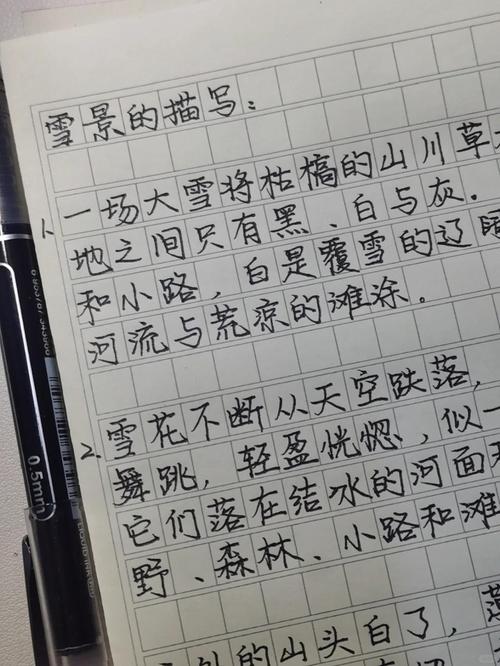 雪景的描写：
1. 一场大雪将枯槁的山川草
地之间只有黑、白与灰.
和小路，白是覆雪的辽
河流与荒凉的滩涂.
2. 雪花不断从天空跌落，
舞跳，轻盈恍惚，似一
它们落在结冰的河面
野、森林、小路和滩
的山头白了，
0.5mm